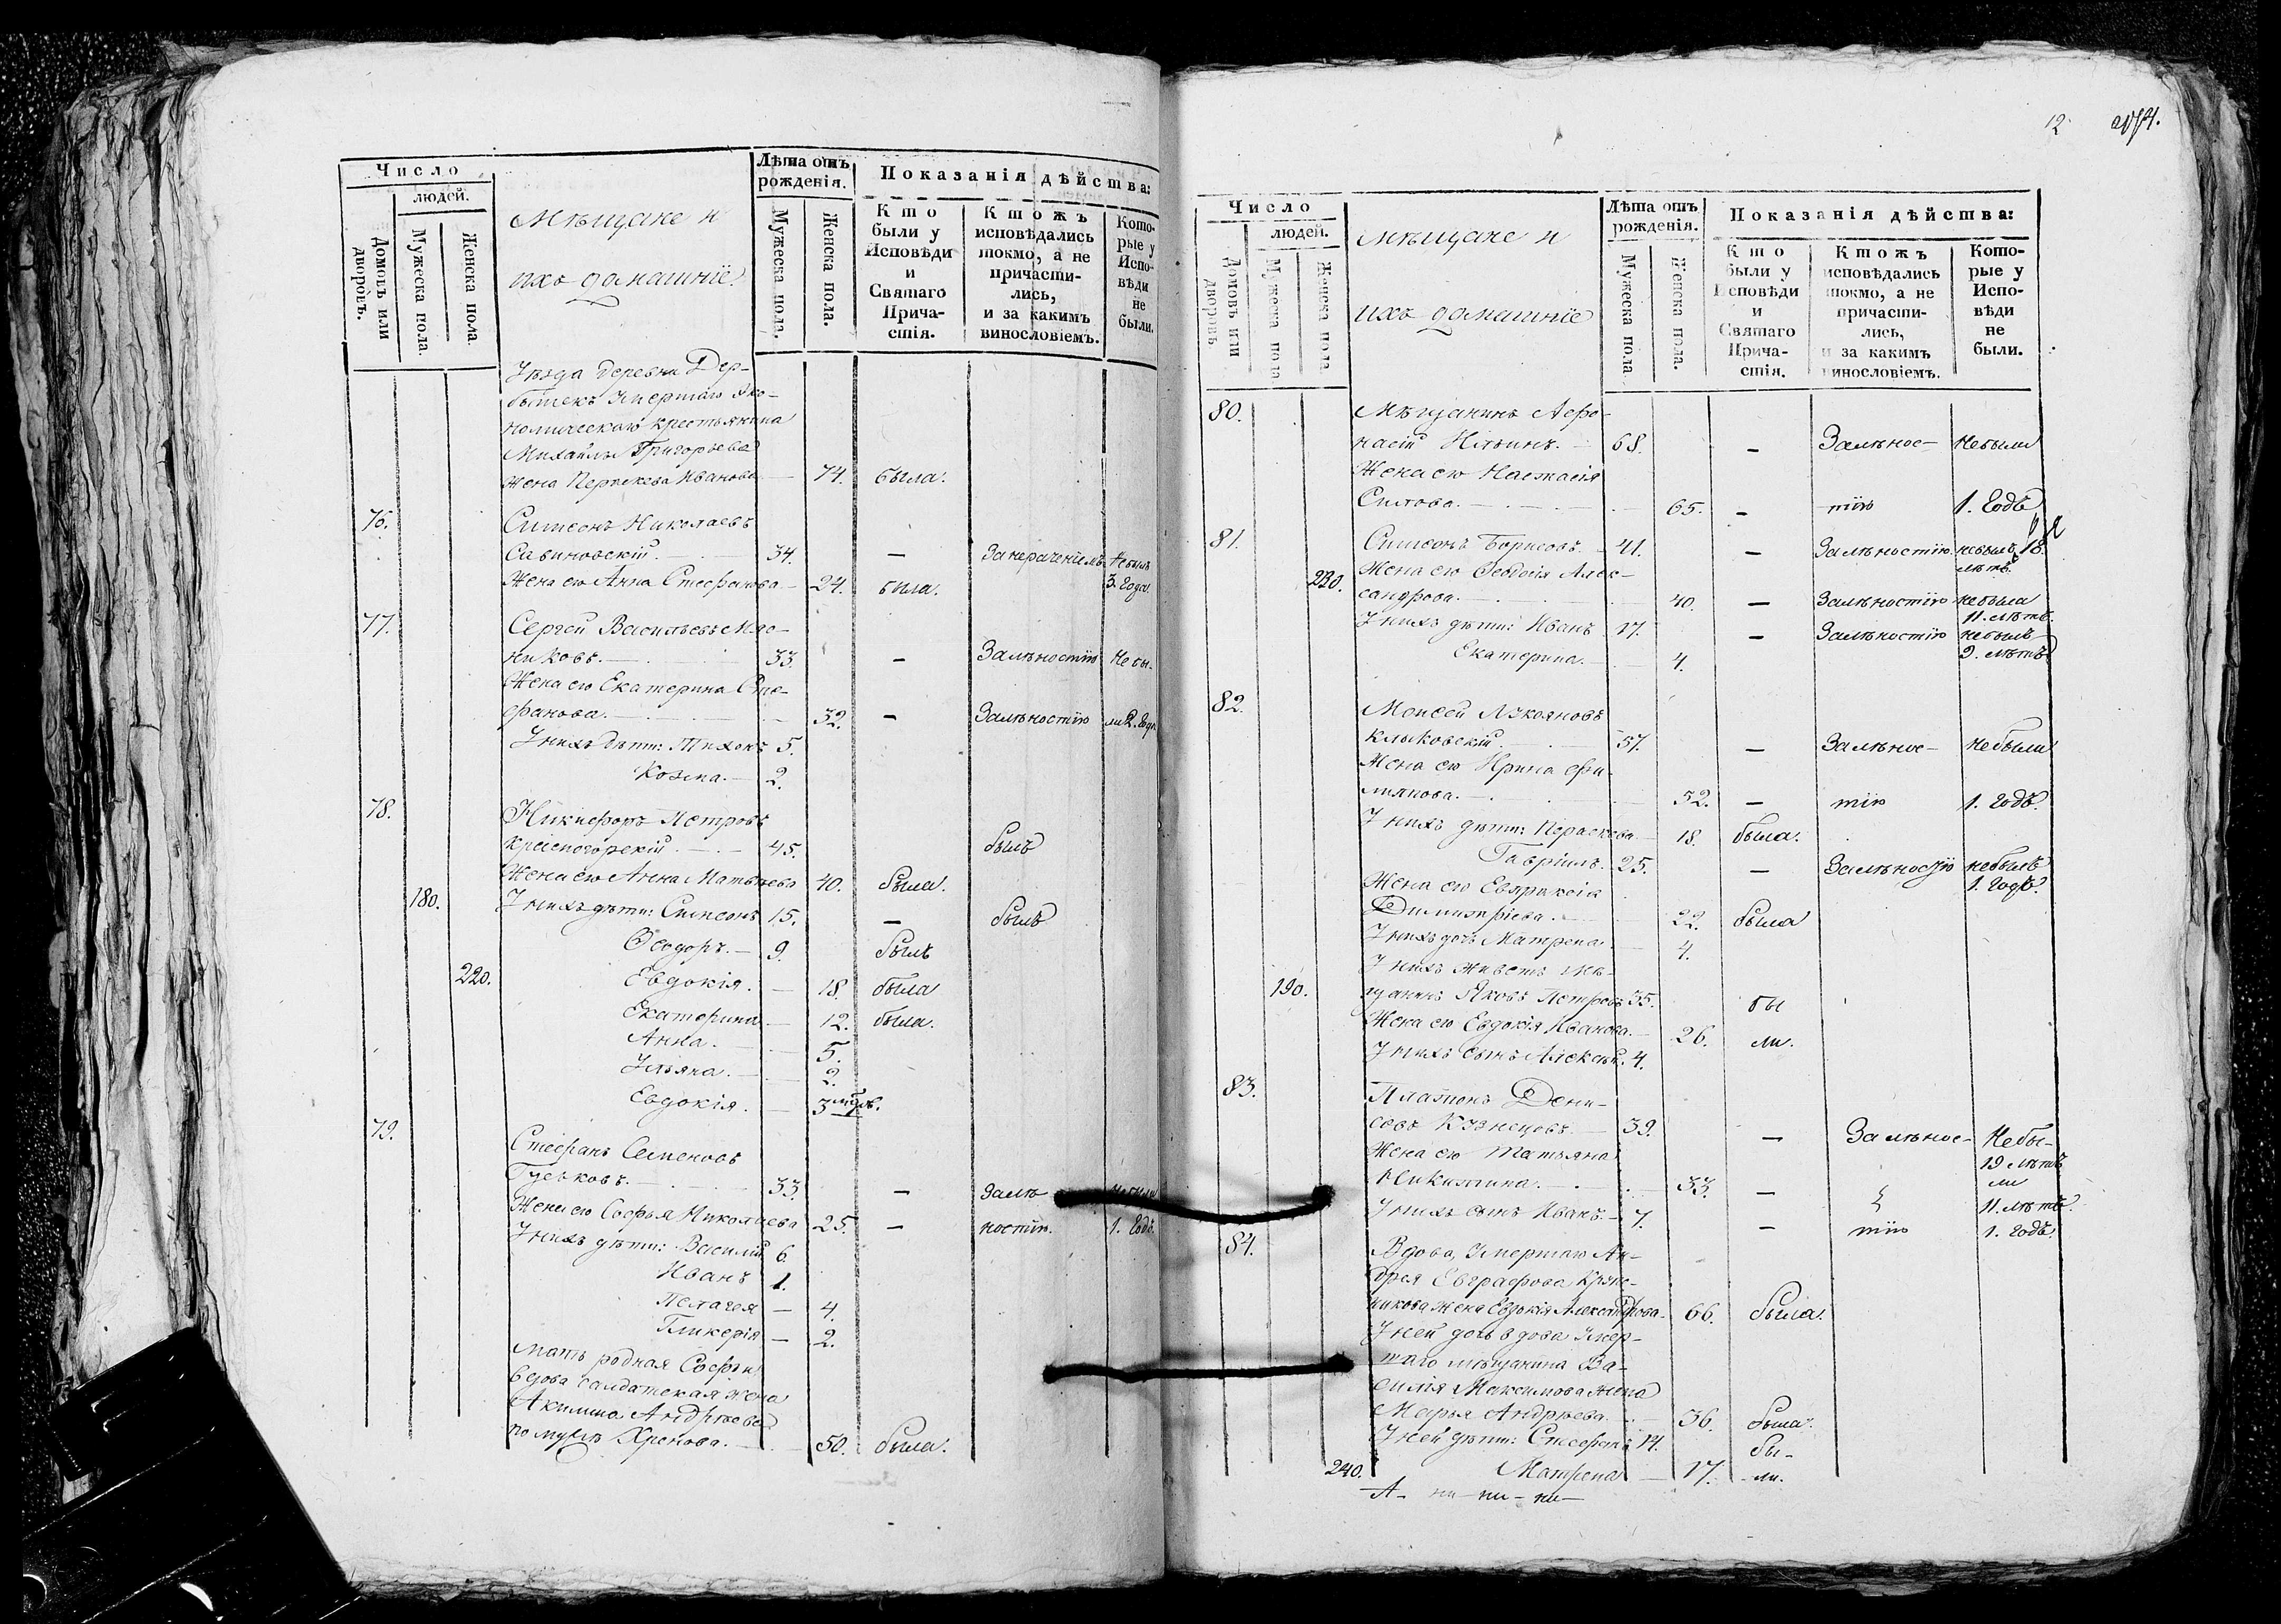 Число
людей.
Домовъ или дворовъ.
Мужеска пола.
Женска пола
Мѣщане и
ихъ домашніе.
Лѣта отъ рожденія.
Мужеска пола.
Женска пола.
Показанія дѣйства:
Кто были у Исповѣди и Святаго Причастія.
Ктожъ исповѣдались токмо, а не причастились, и за какимъ винословіемъ.
Которые у Исповѣди не были.
Уѣзда деревни Дер-
умершаго Эко-
номическаго крестьянина
Михайлы Григорьева
жена Пераскева Иванова — 74. была.
76. Симеонъ Николаевъ
Савиновскій. — 34. — Занераченіемъ Небылъ
Жена его Анна Стефанова — 24. была. 3. года.
77. Сергей Васильевъ Мяс-
никовъ. — 33. — Залѣностію Небы-
Жена его Екатерина Сте-
фанова. — 32. — Залѣностію ли 2. года.
У нихъ дѣти: Тихонъ 5.
Козма. — 2.
78. Никифоръ Петровъ
Красногорскій. — 45. былъ
Жена его Анна Матвѣева 40. была.
180. У нихъ дѣти: Симеонъ 15. — былъ
Ѳеодоръ. — 9. былъ
220. Евдокія. — 18. была
Екатерина — 12. была.
Анна. — 5.
Ульяна. — 2.
Евдокія. — 3 мѣс.
79. Стефанъ Семеновъ
Гуськовъ. — 33. — Залѣ Небыли
Жена его Софья Николаева 25. — ностію. 1. Годъ.
У нихъ дѣти: Василій 6.
Иванъ 1.
Пелагея — 4.
Гликерія — 2.
Мать родная Софьи
вдова салдатская жена
Акилина Андрѣева
по мужѣ Хренова. — 50. была.
12
Число
людей.
Домовъ или дворовъ
Мужеска пола
Женска пола
Мѣщане и
ихъ домашніе
Лѣта отъ рожденія.
Мужеска пола.
Женска пола.
Показанія дѣйства:
Кто были у Исповѣди и Святаго Причастія.
Ктожъ исповѣдались токмо, а не причастились, и за какимъ винословіемъ.
Которые у Исповѣди не были.
80. Мѣщанинъ Афо-
насій Ильинъ. — 68. — Залѣнос- Небыли
Жена его Настасія
Силова. — 65. — тію 1. Годъ
81. Симеонъ Борисовъ. — 41. — Залѣностію. небылъ 18. лѣтъ.
230. Жена его Ѳеодосія Алек-
сандрова. — 40. — Залѣностію небыла 11. лѣтъ.
У нихъ дѣти: Иванъ 17. — Залѣностію небылъ 9. лѣтъ
Екатерина. — 4.
82. Моисей Лукояновъ
Клыковскій. — 57. — Залѣнос- небыли
Жена его Ирина Фи-
липова. — 52. — тію 1. годъ.
У нихъ дѣти: Пераскева — 18. была.
Гавріилъ. 25. — Залѣностію небылъ 1. годъ.
Жена его Евпраксія
Димитріева. — 22. была
У нихъ дочь Матрена. — 4.
У нихъ живетъ мѣ-
190. щанинъ Яковъ Петровъ 35. бы
Жена его Евдокія Иванова. — 26. ли.
У нихъ сынъ Алексѣй. 4.
83. Платонъ Дени-
совъ Кузнецовъ. — 39. — Залѣнос- Небы-
19 лѣтъ
Жена его Татьяна ли
Никитина. — 33. — 11. лѣтъ.
У нихъ сынъ Иванъ. — 7. — тію 1. годъ.
84. Вдова, умершаго Ан-
дрея Евграфова
жена Евдокія Александрова. 66. была.
У ней дочь вдова умер-
шаго мѣщанина Ва-
силія Максимова жена
Марья Андрѣева. — 36. была.
У ней дѣти: Стефанъ 14. бы-
240. Матрена — 17. ли.